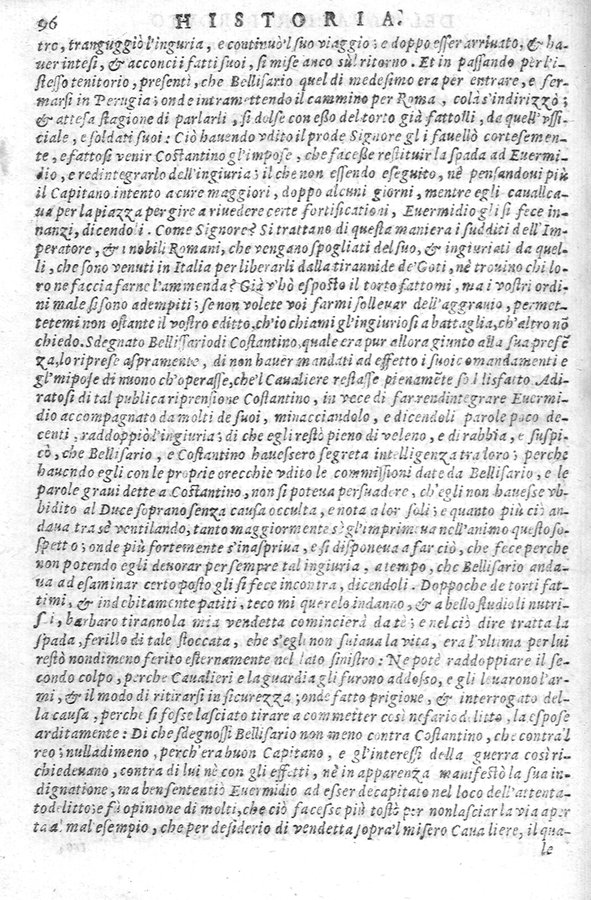 96 HISTORIA.
tro, trangugiò l'inguria, e continuò'l suo viaggio; e doppo esser arriuato, & ha-
uer intesi, & acconcii fatti suoi, si mise anco su'l ritorno. Et in passando per l'i-
stesso tenitorio, presentì, che Bellisario quel di medesimo era per entrare, e fer-
marsi in Perugia; onde intramettendo il cammino per Roma, colà s'indirizzò;
& attesa stagione di parlarli, si dolse con esso del torto già fattolli, da quell'vffi-
ciale, e soldati suoi: Ciò hauendo vdito il prode Signore gli fauellò cortesemen-
te, e fattosi venir Costantino gl'impose, che facesse restituir la spada ad Euermi-
dio, e redintegrarlo dell'ingiuria; il che non essendo eseguito, nè pensandoui più
il Capitano intento a cure maggiori, doppo alcuni giorni, mentre egli caualca-
ua per la piazza per gire a riuedere certe fortificationi, Euermidio gli si fece in-
nanzi, dicendoli. Come Signore? Si trattano di questa maniera i sudditi dell'Im-
peratore, & i nobili Romani, che vengano spogliati del suo, & ingiuriati da quel-
li, che sono venuti in Italia per liberarli dalla tirannide de'Goti, nè trouino chi lo-
ro ne faccia farne l'ammenda? Già v'hò esposto il torto fattomi, ma i vostri ordi-
ni male si sono adempiti; se non volete voi farmi solleuar dell'aggrauio, permet-
tetemi non ostante il vostro editto, ch'io chiami gl'ingiuriosi a battaglia, ch'altro nõ
chiedo. Sdegnato Bellissario di Costantino, quale era pur allora giunto alla sua presẽ
za, lo riprese aspramente, di non hauer mandati ad effetto i suoi comandamenti e
gl'mipose di nuono ch'operasse, che'l Caualiere restasse pienamẽte sodisfatto. Adi-
ratosi di tal publica riprensione Costantino, in vece di far rendintegrare Euermi-
dio accompagnato da molti de suoi, minacciandolo, e dicendoli parole poco de-
centi, raddoppiò l'ingiuria; di che egli restò pieno di veleno, e di rabbia, e suspi-
cò, che Bellisario, e Costantino hauessero segreta intelligenza tra loro; perche
hauendo egli con le proprie orecchie vdito le commissioni date da Bellisario, e le
parole graui dette a Costantino, non si poteua persuadere, ch'egli non hauesse vb-
bidito al Duce soprano senza causa occulta, e nota a lor soli; e quanto più ciò an-
daua tra sè ventilando, tanto maggiormente se gl'imprimeua nell'animo questo so-
spetto; onde più fortemente s'inaspriua, e si disponeua a far ciò, che fece perche
non potendo egli deuorar per sempre tal ingiuria, a tempo, che Bellisario anda-
ua ad esaminar certo posto gli si fece incontra, dicendoli. Doppoche de torti fat-
timi, & indebitamente patiti, teco mi querelo indanno, & a bello studio li nutri-
sci, barbaro tiranno la mia vendetta comincierà da tè; e nel ciò dire tratta la
spada, ferillo di tale stoccata, che s'egli non suiaua la vita, era l'vltima per lui
restò nondimeno ferito esternamente nel lato sinistro: Ne potè raddoppiare il se-
condo colpo, perche Caualieri e la guardia gli furono addosso, e gli leuarono l'ar-
mi, & il modo di ritirarsi in sicurezza; onde fatto prigione, & interrogato del-
la causa, perche si fosse lasciato tirare a commetter così nefario delitto, la espose
arditamente: Di che sdegnossi Bellisario non meno contra Costantino, che contra'l
reo; nulladimeno, perch'era buon Capitano, e gl'interessi della guerra così ri-
chiedeuano, contra di lui nè con gli effetti, nè in apparenza manifestò la sua in-
dignatione, ma ben sententiò Euermidio ad esser decapitato nel loco dell'attenta-
to delitto: e fù opinione di molti, che ciò facesse più tosto per non lasciar la via aper
ta a' mal'esempio, che per desiderio di vendetta sopra'l misero Caualiere, il qua-
le